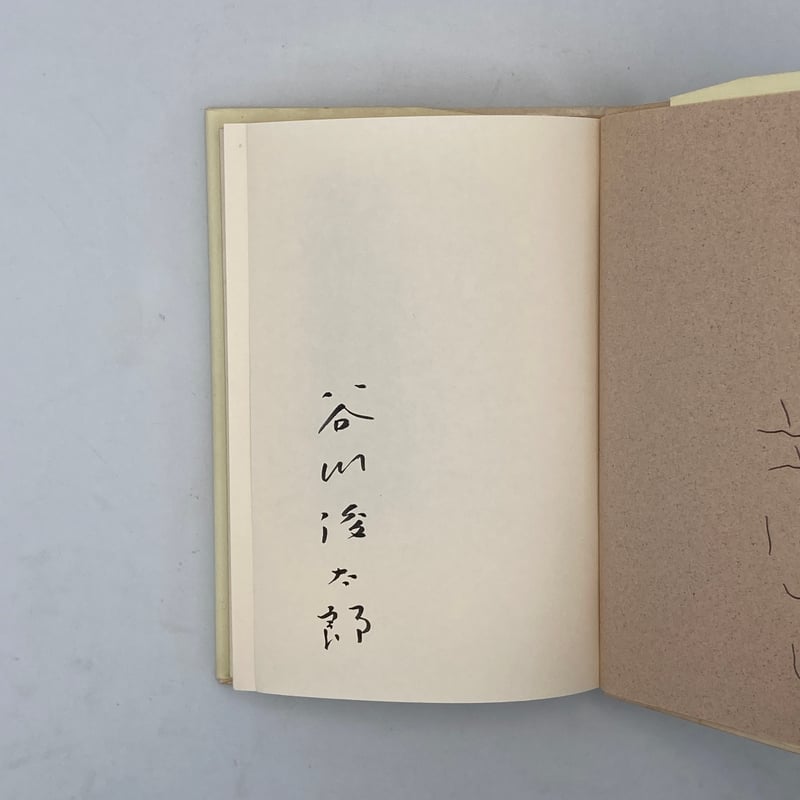 谷川俊太郎